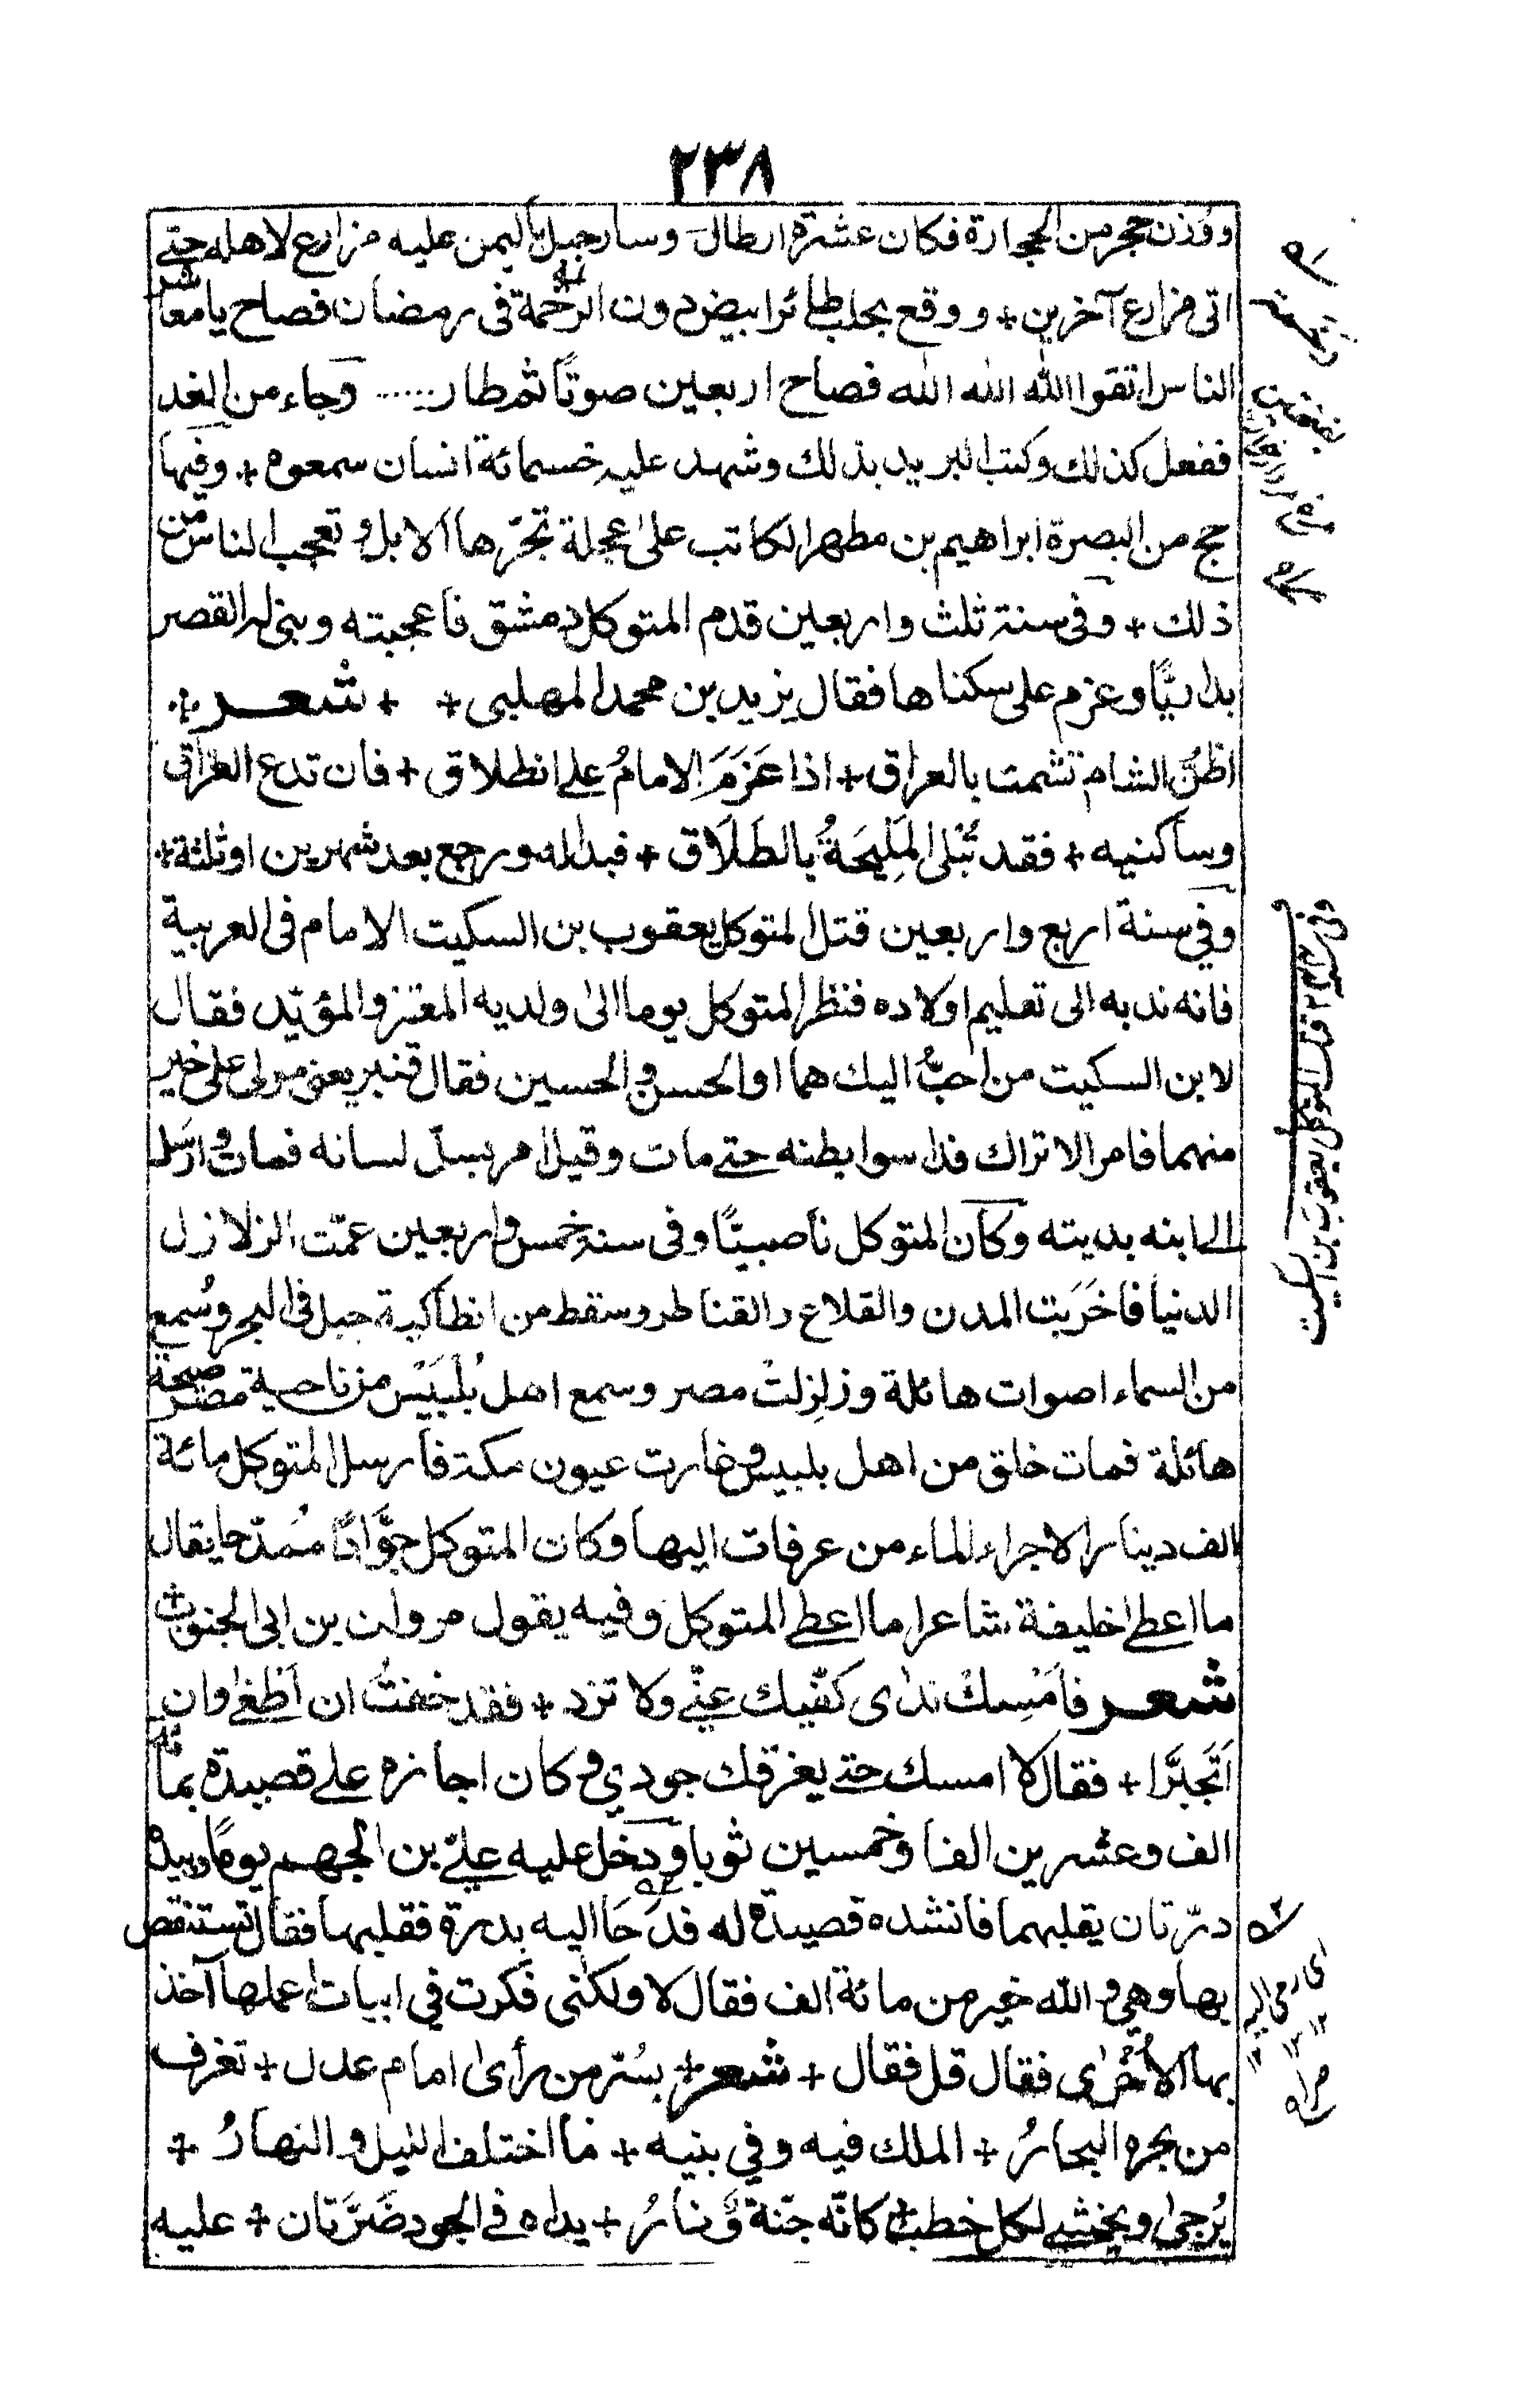 ٢٣٨
ووُزن حجر من الحجارة فكان عشرة ارطال وسار جبل باليمن عليه مزارع لاهله حتے
اتى مزارع آخرين + ووقع بحلب طائر ابيض دون الرخمة فى رمضان فصاح يا معاشر
الناس اتقوا الله الله الله فصاح اربعين صوتًا ثم طار ..... وجاء من الغد
ففعل كذلك وكتب البريد بذلك وشهد عليه خمسمائة انسان سمعوه + وفيها
حج من البصرة ابراهيم بن مطهر الكاتب علىٰ عجلة تجرّها الابل وتعجب الناس من
ذلك + وفى سنة ثلث واربعين قدم المتوكل دمشق فاعجبته وبنى له القصر
بداريّا وعزم على سكناها فقال يزيد بن محمد المهلبى + + شعر +
اظنّ الشام تشمت بالعراق + اذا عَزَمَ الامامُ علے انطلاق + فان تدع العراق
وساكنيه + فقد تُبْلى المَلِيحَةُ بالطَلَاق + فبدا له ورجع بعد شهرين او ثلثة +
وفي سنة اربع واربعين قتل المتوكل يعقوب بن السكيت الامام فى العربية
فانه ندبه الى تعليم اولاده فنظر المتوكل يوما الىٰ ولديه المعتز والمؤيّد فقال
لابن السكيت من احبُّ اليك هما او الحسن والحسين فقال قنبر يعنى مولى على خير
منهما فامر الاتراك فداسوا بطنه حتے مات وقيل امر بسلّ لسانه فمات وارسل
الے ابنه بديته وكان المتوكل ناصبيًّا وفى سنة خمس واربعين عمّت الزلازل
الدنيا فاخَرَبت المدن والقلاع والقناطر وسقط من انطاكية جبل فى البحر وسُمع
من السماء اصوات هائلة وزلزلتْ مصر وسمع اهل بُلْبَيْس من ناحية مصر صيحة
هائلة فمات خلق من اهل بلبيس وغارت عيون مكة فارسل المتوكل مائة
الف دينار لاجراء الماء من عرفات اليها وكان المتوكل جوَّادًا مُمدّحا يقال
ما اعطے خليفة شاعرا ما اعطے المتوكل وفيه يقول مروان بن ابى الجنوب +
شعر فاَمْسِكْ ندٰى كفّيك عنّے ولا تزد + فقد خفتُ ان اَطْغےٰ وان
اَتَجَبَّرا + فقال لا امسك حتے يغرقك جودي وكان اجازه علے قصيدة بمائة
الف وعشرين الفا وخمسين ثوبا ودخل عليه علےّ بن الجهم يومًا وبيده
درّتان يقلبهما فانشده قصيدة له فدَحَا اليه بدرة فقلبها فقال تستنقص
بها وهى والله خير من مائة الف فقال لا ولكنى فكرت فى ابيات اعملها آخذ
بها الاُخْرٰى فقال قل فقال + شعر + بسُرّ من رأىٰ امام عدل + تغرف
من بحره البحارُ + الملك فيه وفي بنيه + ما اختلف الليل والنهارُ +
يُرجىٰ ويخشے لكل خطب + كانّه جنّة وَّنارُ + يداه فے الجود ضَرَّتان + عليه
وفى سنة ٢٤٤ قتل المتوكل يعقوب بن السكيت
اى رمى اليه
١٢
صراح